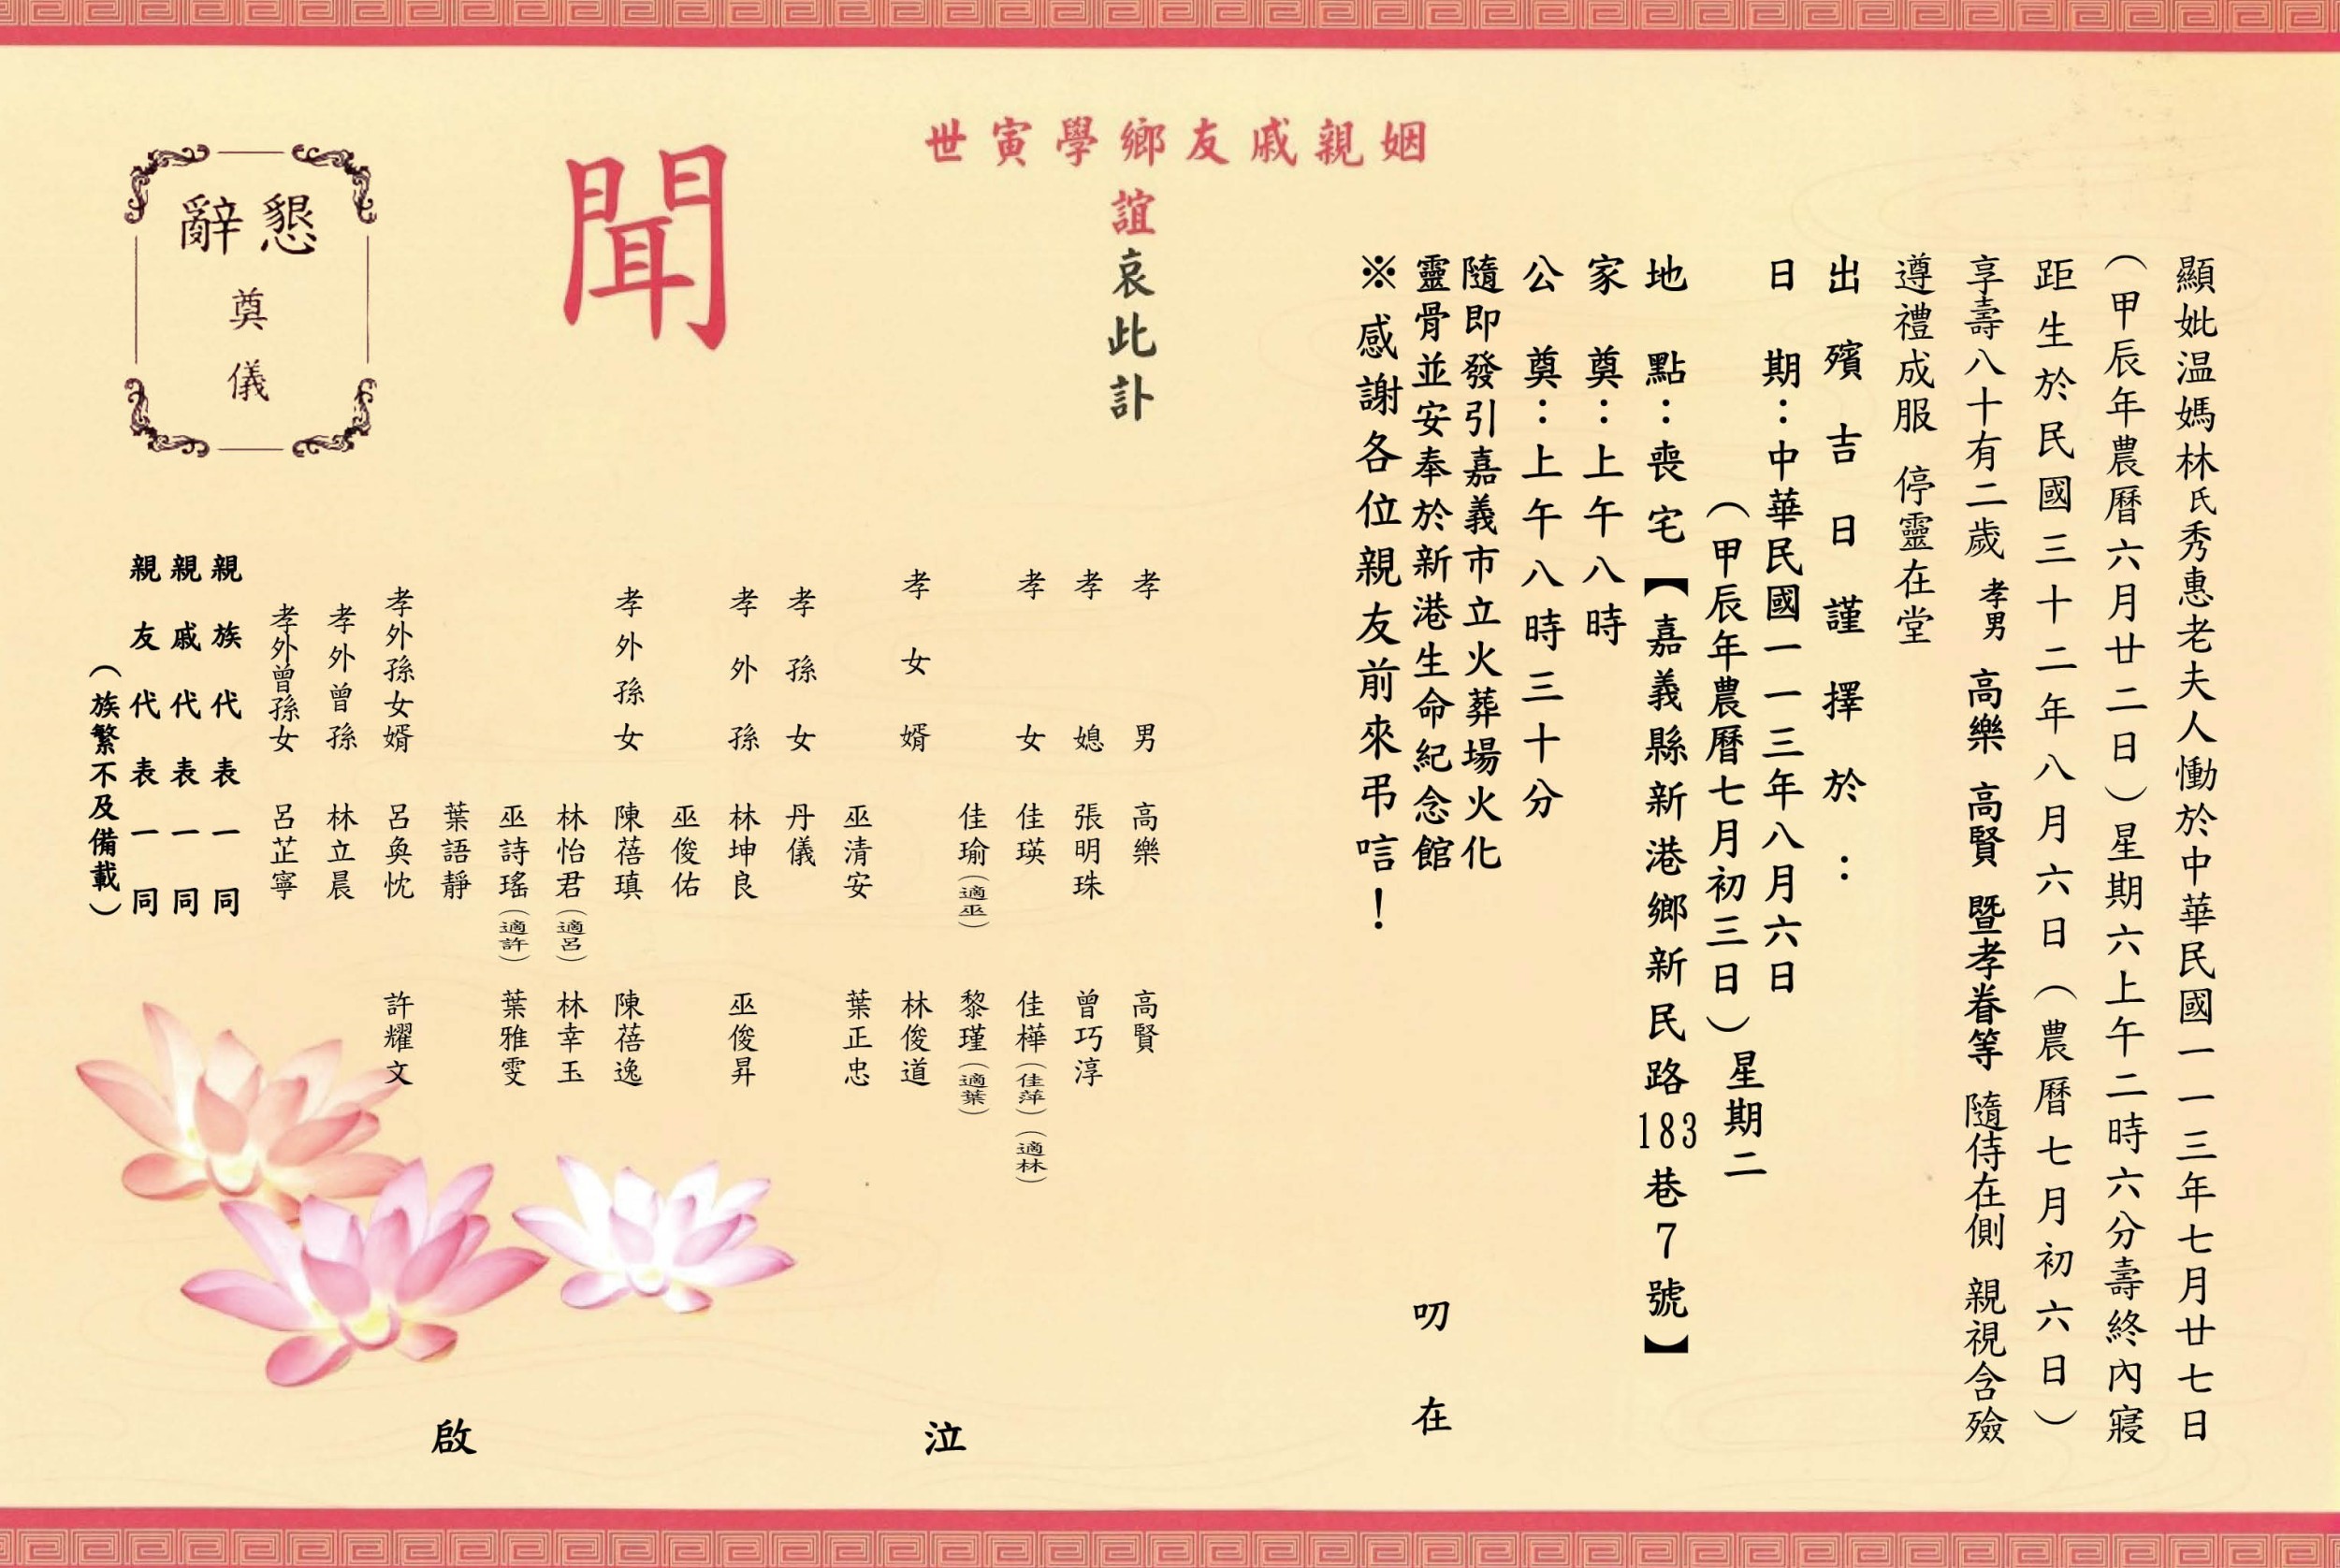 顯妣温媽林氏秀惠老夫人慟於中華民國一一三年七月廿七日
（甲辰年農曆六月廿二日）星期六上午二時六分壽終內寢
距生於民國三十二年八月六日（農曆七月初六日）
享壽八十有二歲 孝男 高樂 高賢 暨孝眷等 隨侍在側 親視含殮
遵禮成服 停靈在堂
出殯吉日謹擇於：
日期：中華民國一一三年八月六日
（甲辰年農曆七月初三日）星期二
地點：喪宅【嘉義縣新港鄉新民路183巷7號】
家奠：上午八時
公奠：上午八時三十分
隨即發引嘉義市立火葬場火化
靈骨並安奉於新港生命紀念館
※感謝各位親友前來弔唁！
叨在
姻親戚友鄉學寅世
誼哀此訃
聞
孝男 高樂 高賢
孝媳 張明珠 曾巧淳
孝女 佳瑛 佳樺（佳萍）（適林）
佳瑜（適巫） 黎瑾（適葉）
孝女婿 林俊道
巫清安 葉正忠
孝孫女 丹儀
孝外孫 林坤良 巫俊昇
巫俊佑
孝外孫女 陳蓓瑱 陳蓓逸
林怡君（適呂） 林幸玉
巫詩瑤（適許） 葉雅雯
葉語靜
孝外孫女婿 呂奐忱 許耀文
孝外曾孫 林立晨
孝外曾孫女 呂芷寧
親族代表一同
親戚代表一同
親友代表一同
（族繁不及備載）
泣啟
懇辭
奠儀